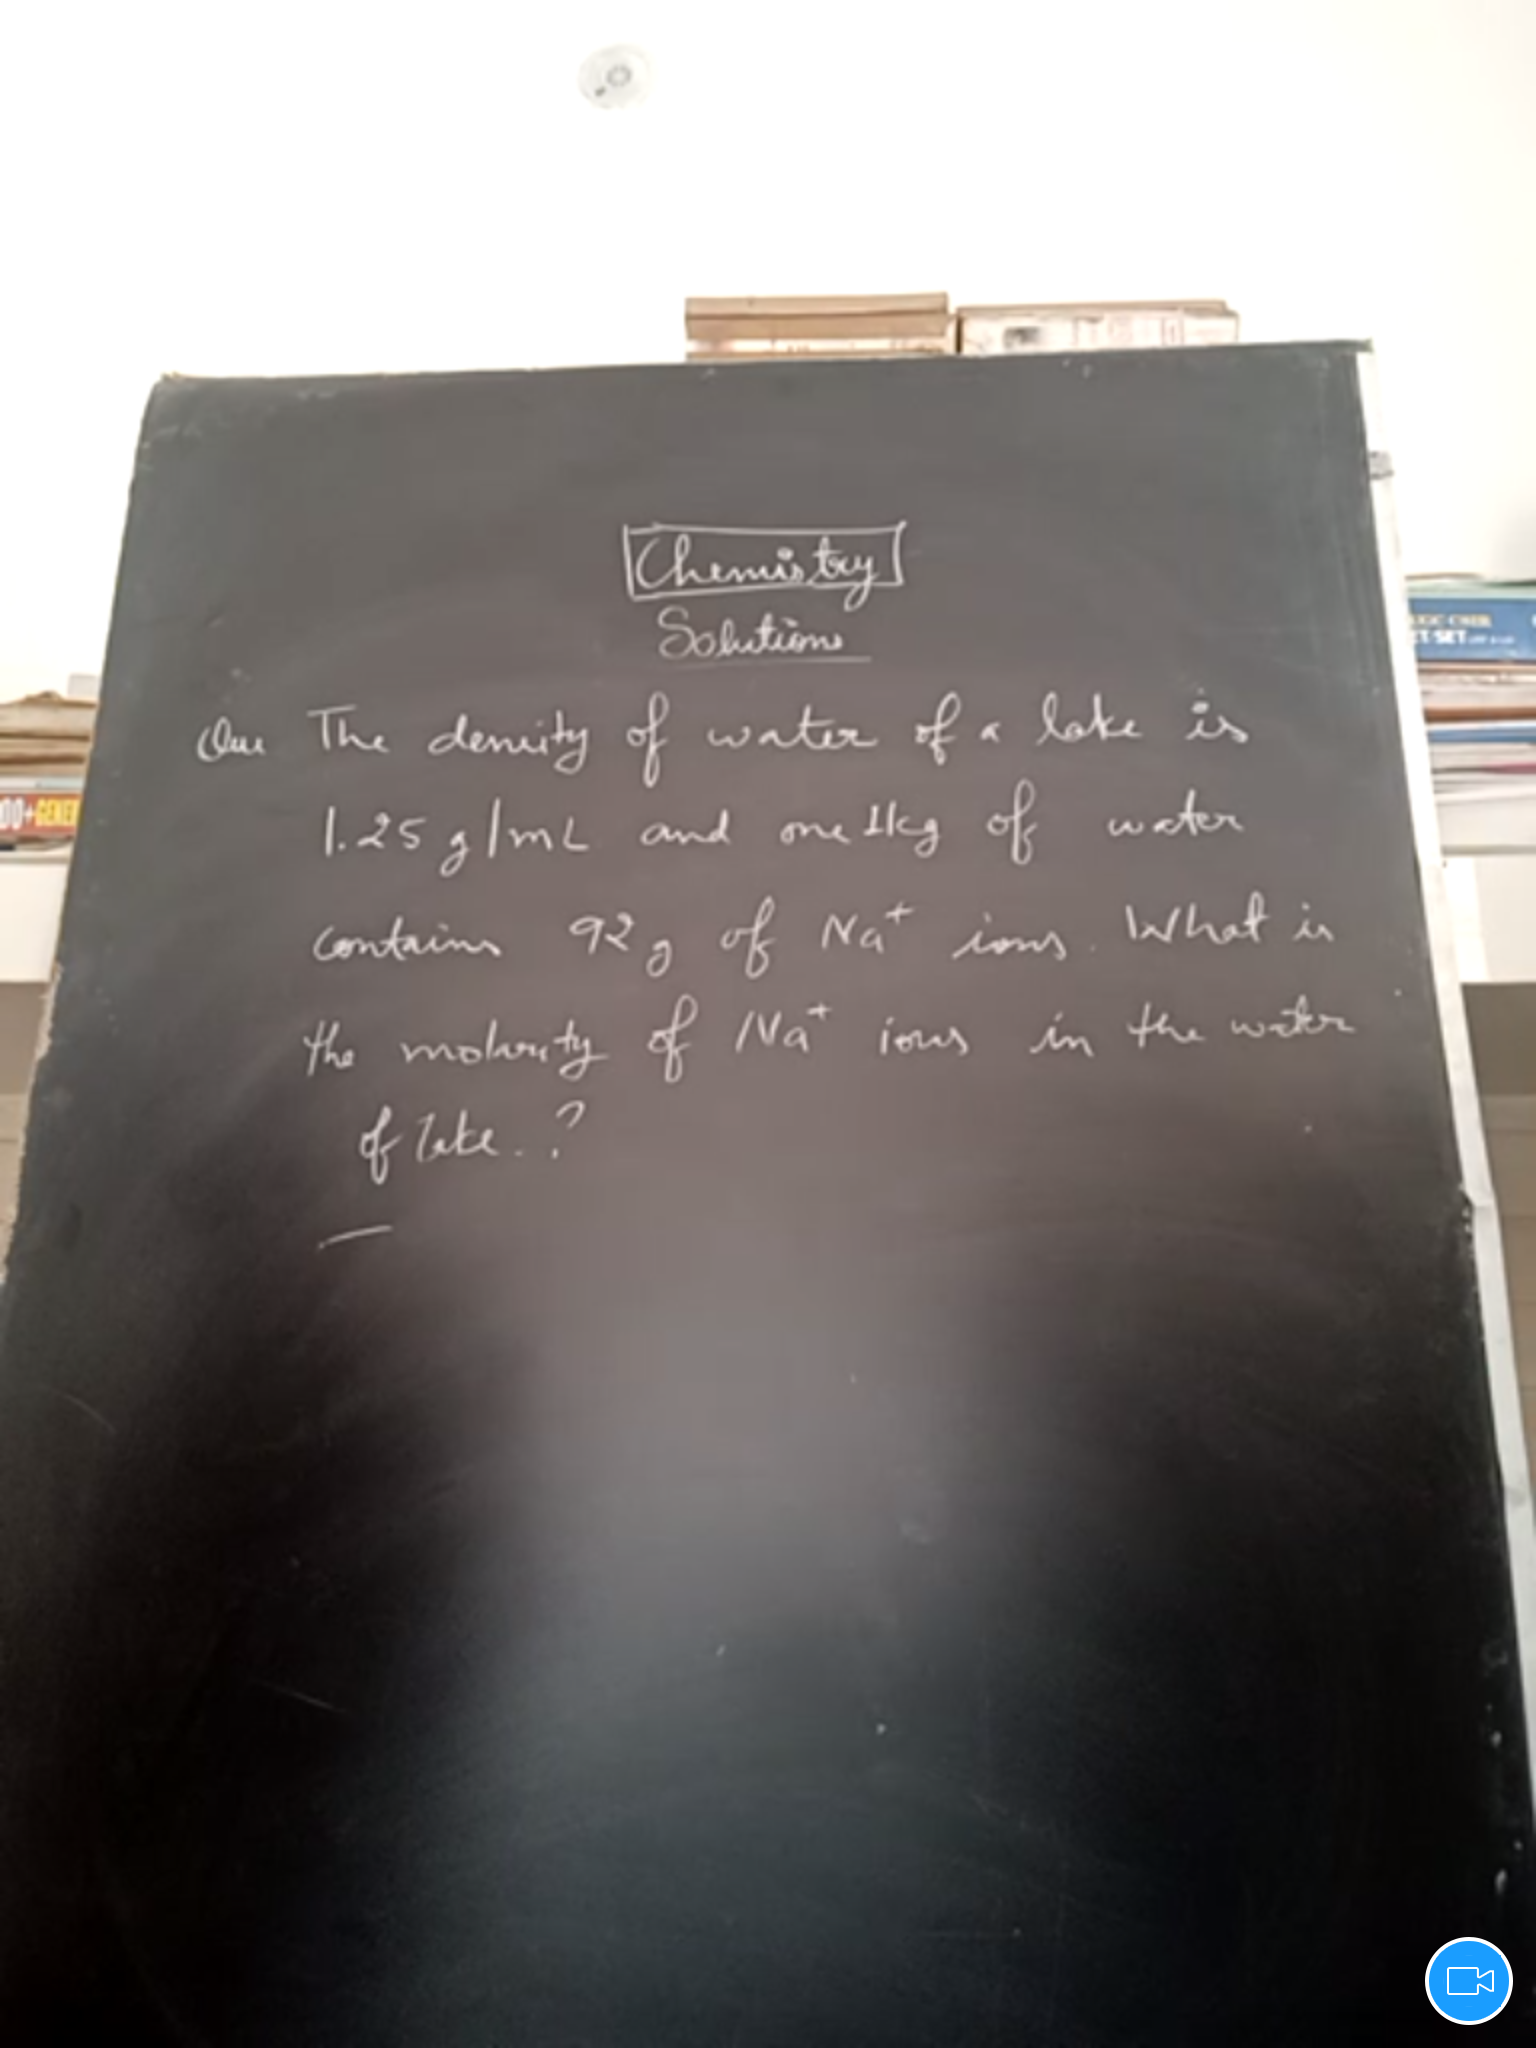 Chemistry
Solutions
Que The density of water of a lake is
1.25 g/mL and one 1kg of water
contains 92 g of Na⁺ ions. What is
the molarity of Na⁺ ions in the water
of lake..?
00+GENER